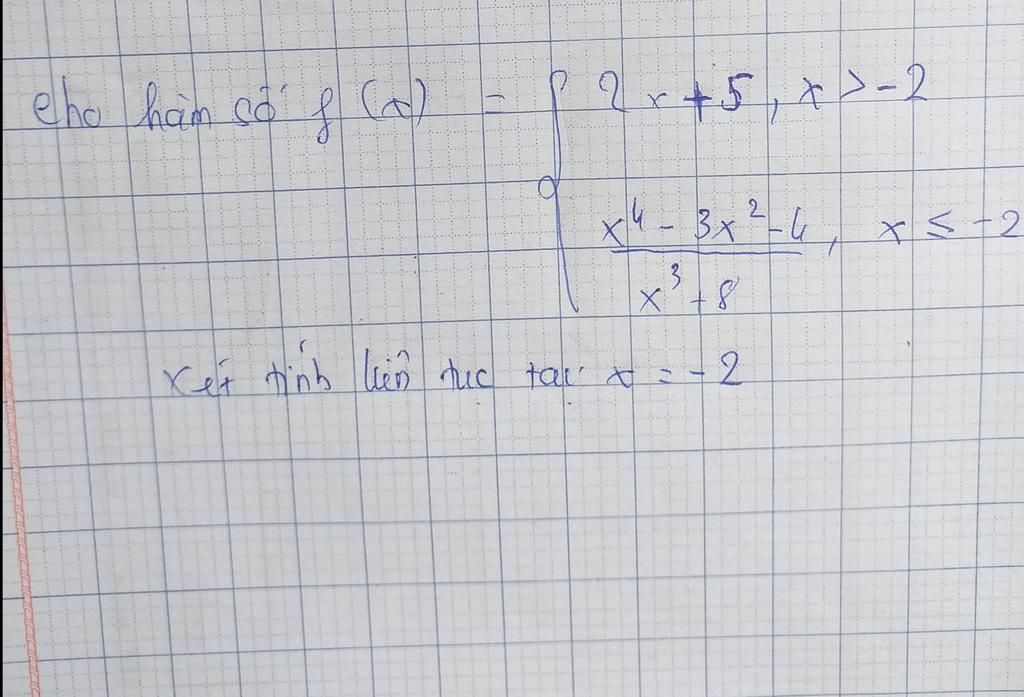 cho hàm số f(x) = { 2x + 5, x > -2
x⁴ - 3x² - 4, x ≤ -2
x³ + 8
Xét tính liên tục tại x = -2